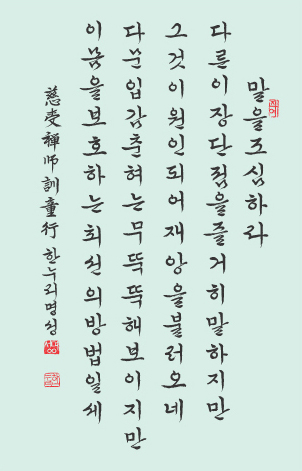 말을조심하라
다른이장단점을즐거히말하지만
그것이원인되어재앙을불러오네
다문입감춘혀는무뚝뚝해보이지만
이몸을보호하는최선의방법일세
慈受禪師訓童行 한누리명성